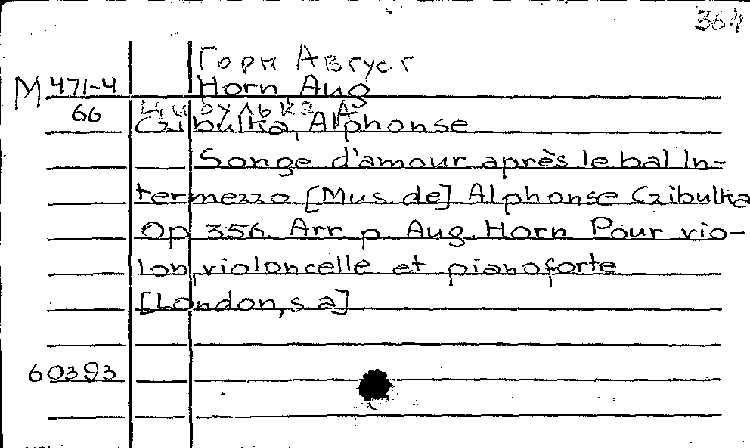 364
Горн Август
M 471-4 Horn, Aug
66 Цибулька, А
Czibulka, Alphonse
Songe d'amour après le bal In-
termezzo [Mus. de] Alphonse Czibulka
Op 356. Arr p. Aug. Horn Pour vio-
lon, violoncelle et pianoforte
[London, s a]
60393